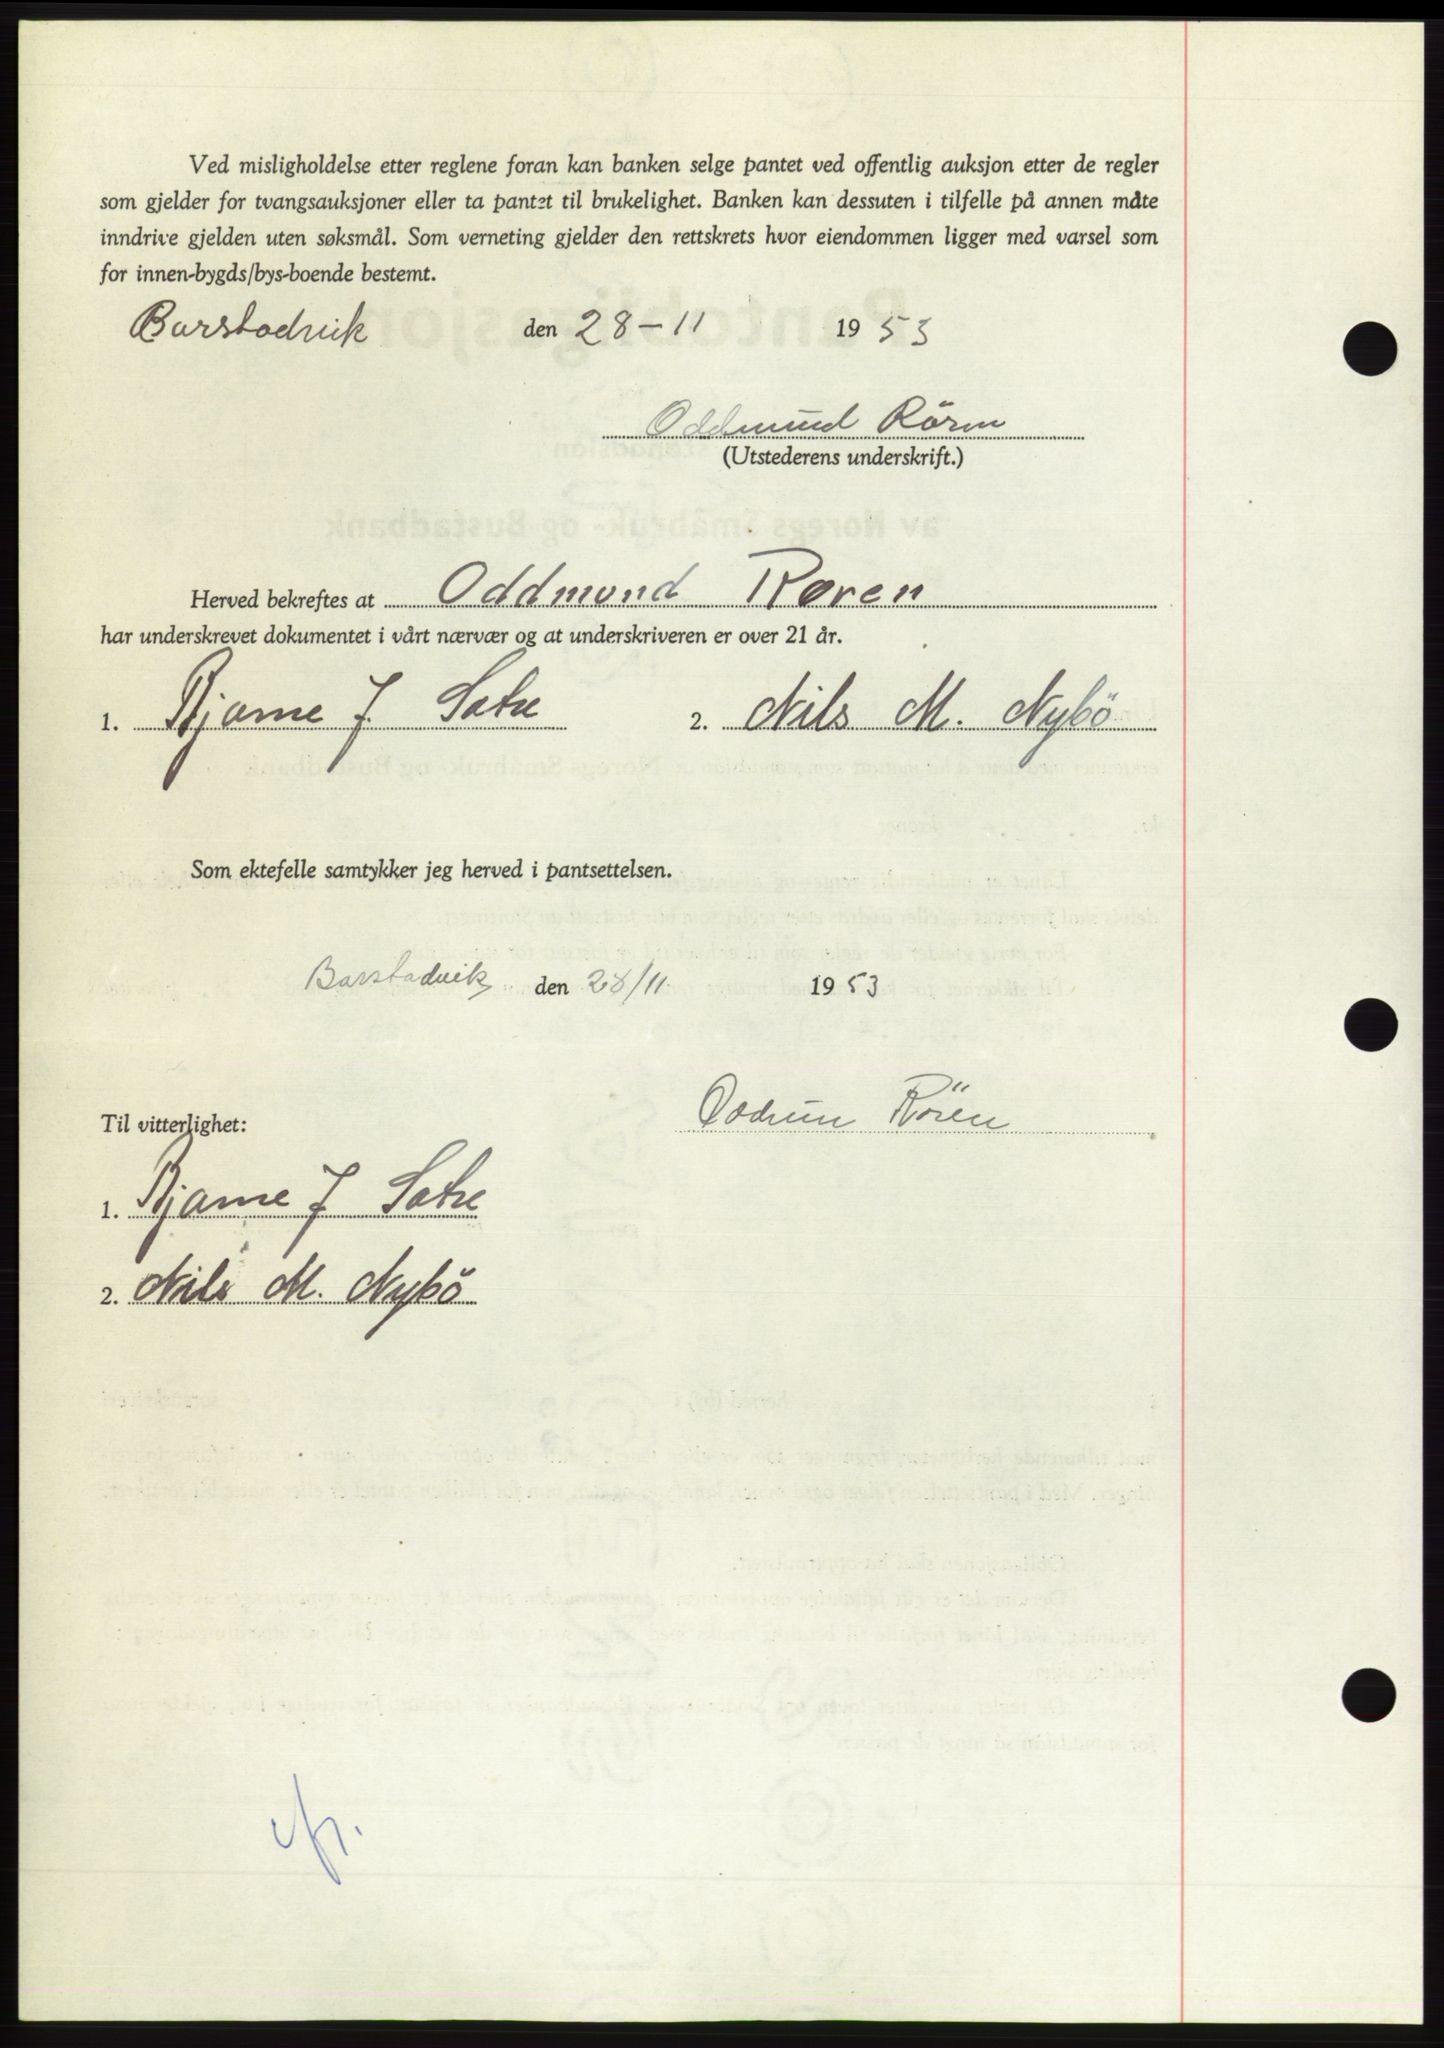 Ved misligholdelse etter reglene foran kan banken selge pantet ved offentlig auksjon etter de regler
som gjelder for tvangsauksjoner eller ta pantet til brukelighet. Banken kan dessuten i tilfelle på annen måte
inndrive gjelden uten søksmål. Som verneting gjelder den rettskrets hvor eiendommen ligger med varsel som
for innen-bygds/bys-boende bestemt.
Barstadvik den 28-11 1953
Oddmund Rören
(Utstederens underskrift.)
Herved bekreftes at Oddmund Røren
har underskrevet dokumentet i vårt nærvær og at underskriveren er over 21 år.
1. Bjarne J. Satre 2. Nils M. Nybö
Som ektefelle samtykker jeg herved i pantsettelsen.
Barstadvik den 28/11 1953
Oddrun Rören
Til vitterlighet:
1. Bjarne J Satre
2. Nils M. Nybö